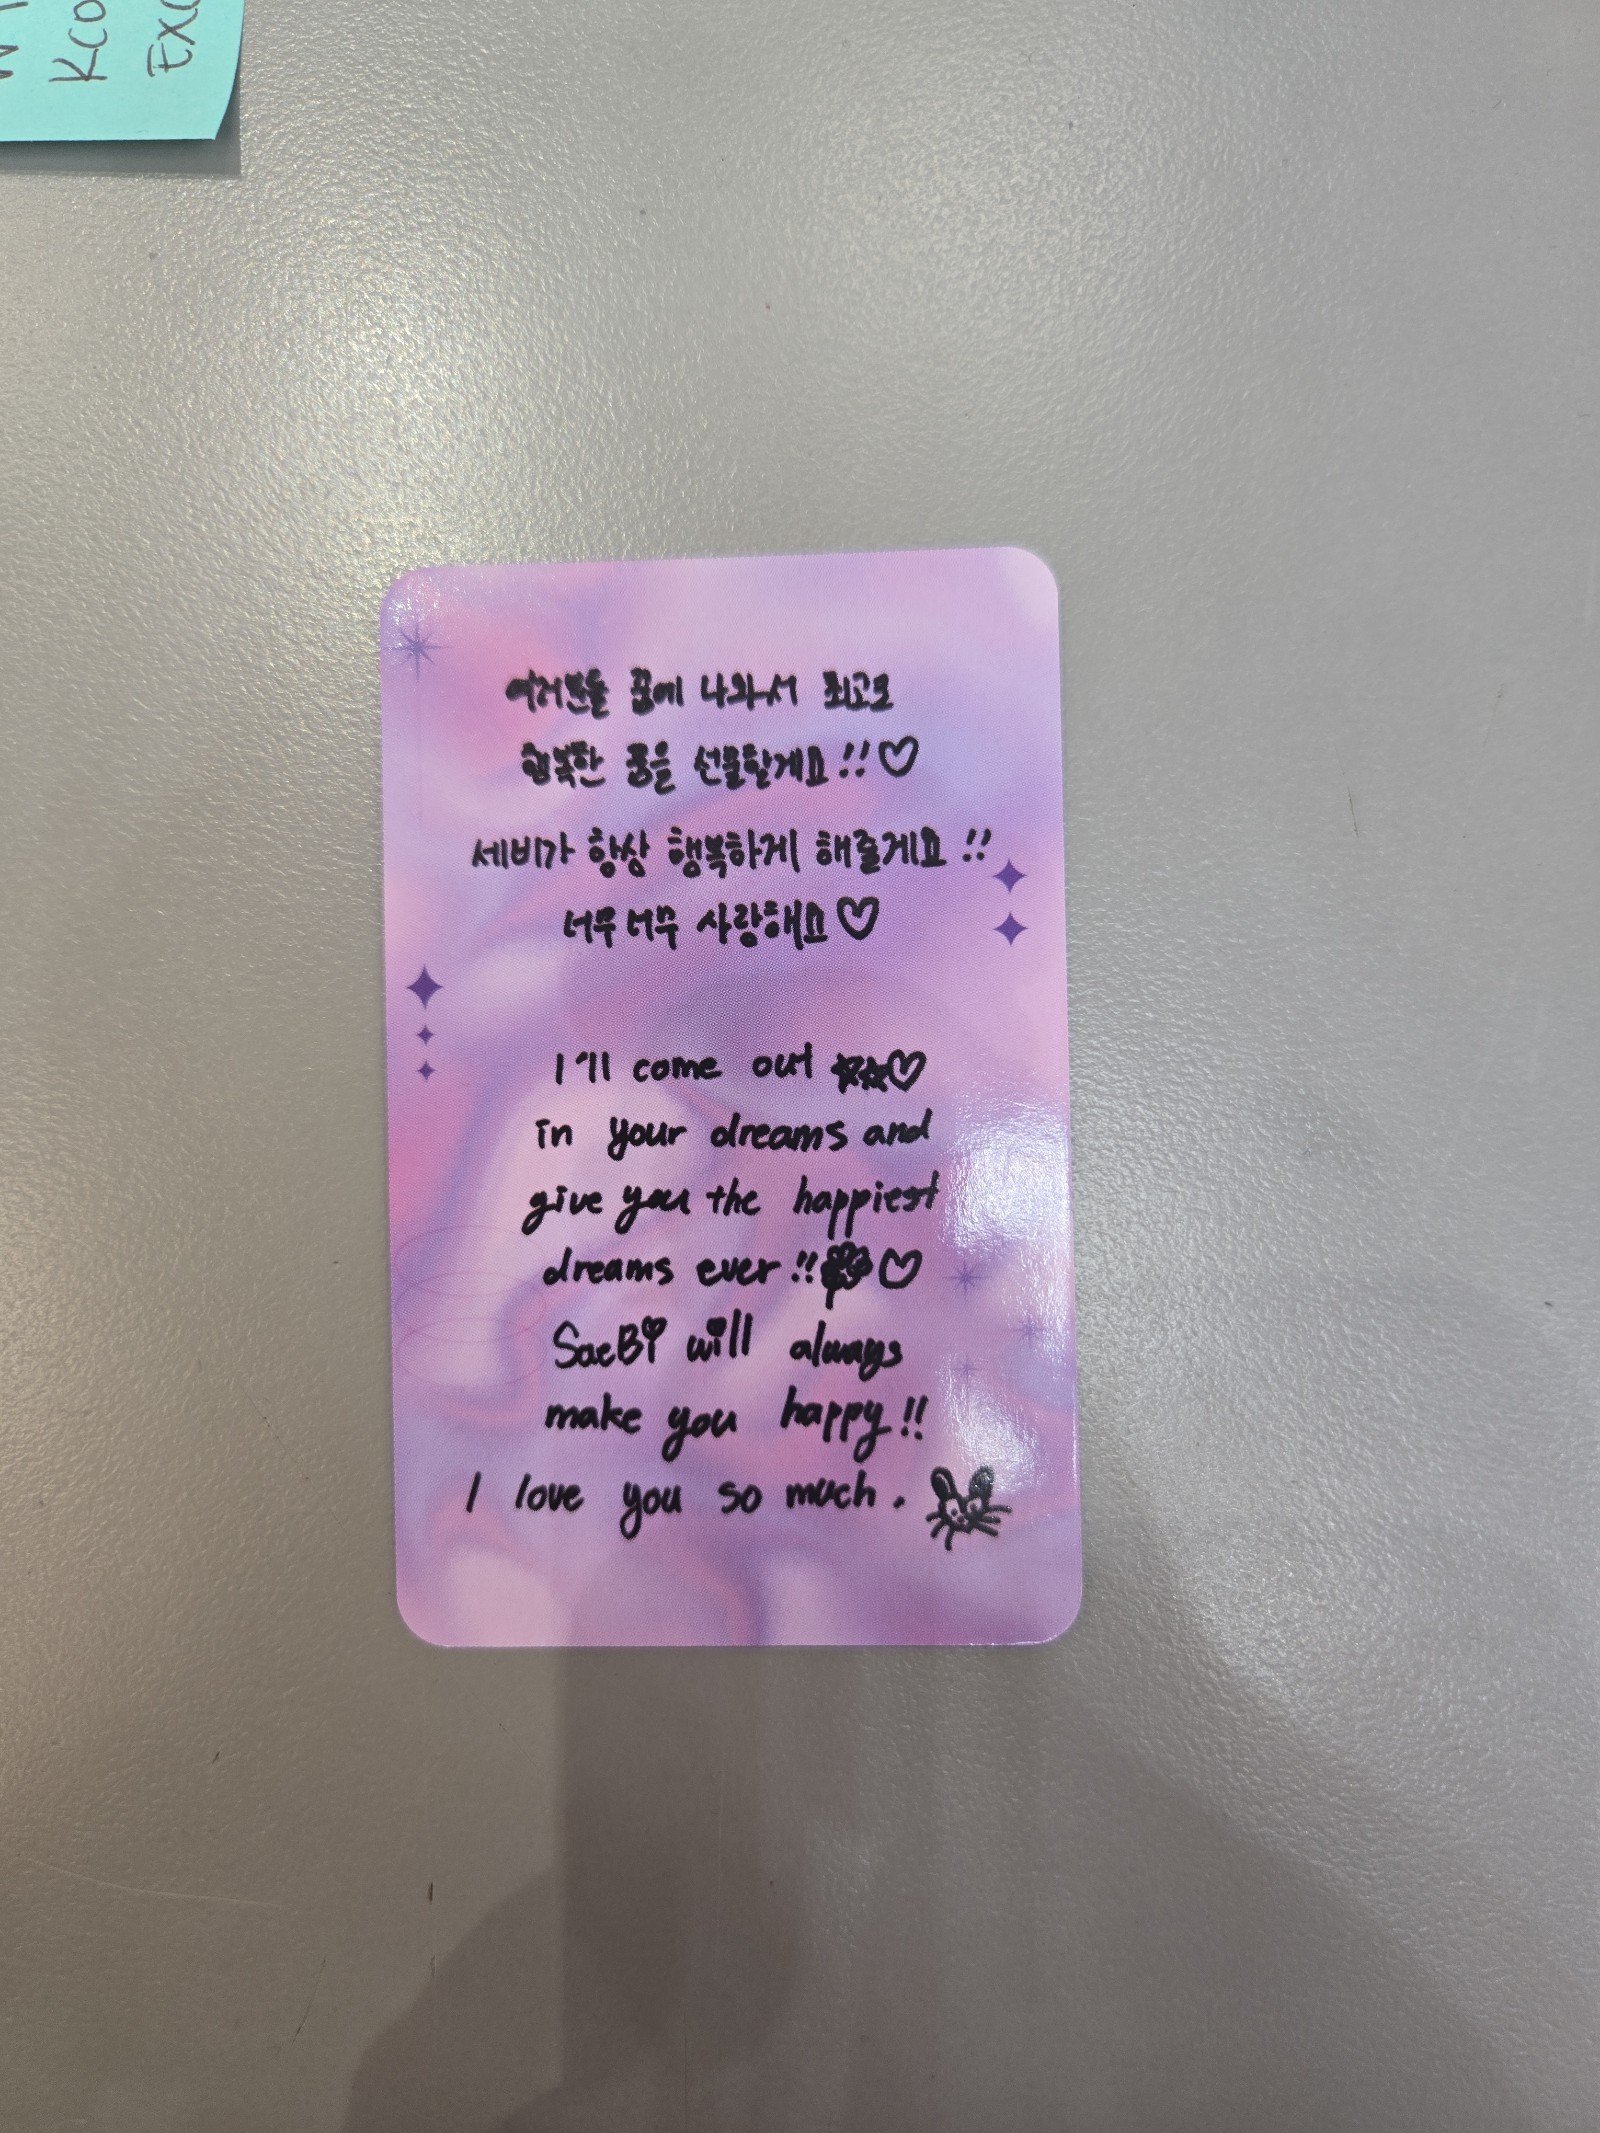 Kco
Exc
여러분들 꿈에 나와서 최고로
행복한 꿈을 선물할게요!!♡
세비가 항상 행복하게 해줄게요!!
너무너무 사랑해요♡
I'll come out ☆☆♡
in your dreams and
give you the happiest
dreams ever!! ♡
SaeBi will always
make you happy!!
I love you so much.